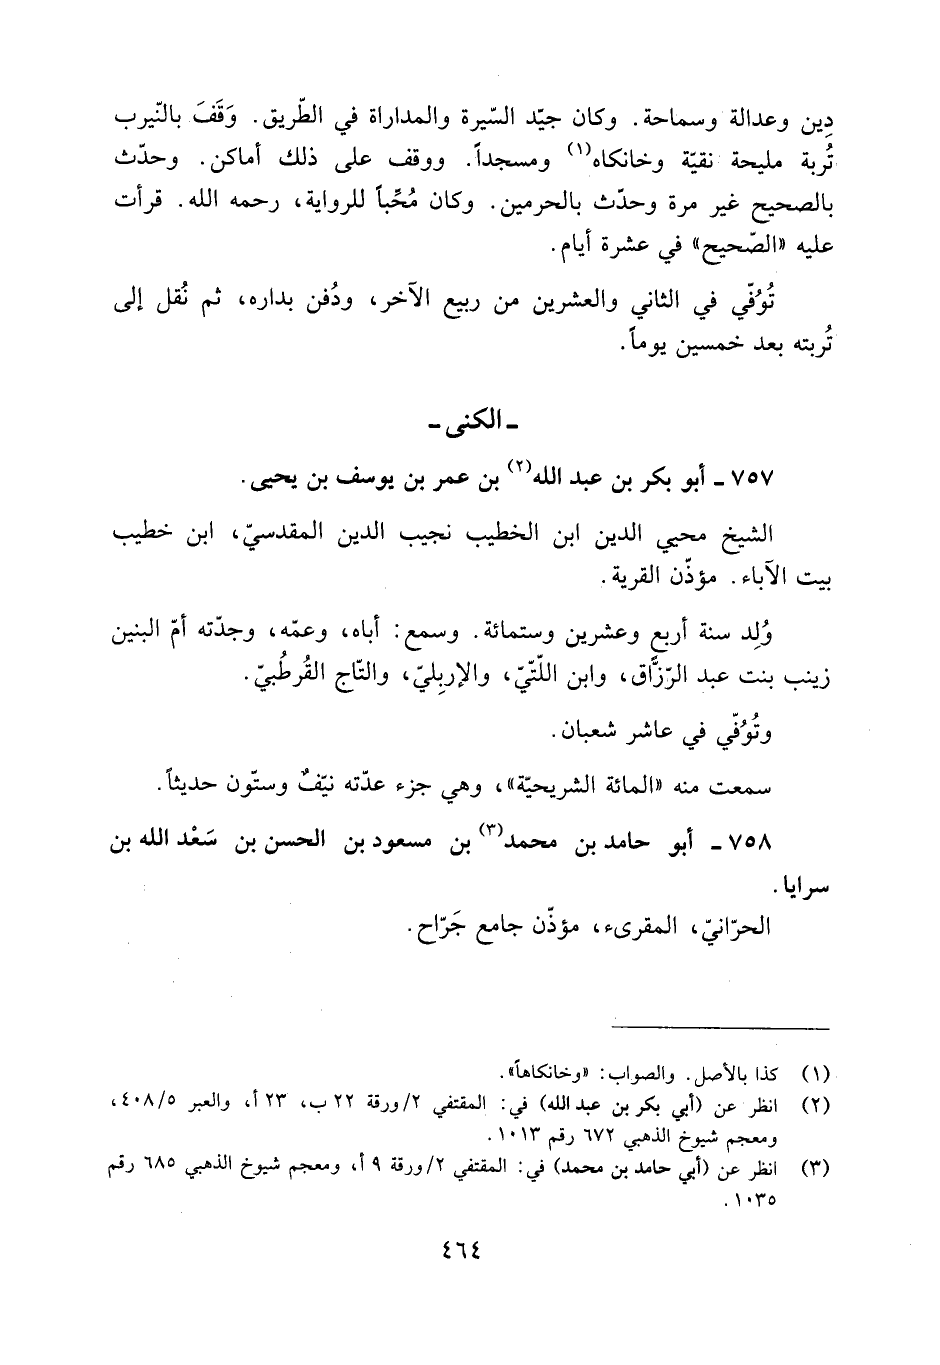 دِين وعدالة وسماحة. وكان جيّد السّيرة والمداراة في الطّريق. وَقَفَ بالنّيرب
تُربة مليحة نقيّة وخانكاه(١) ومسجداً. ووقف على ذلك أماكن. وحدّث
بالصحيح غير مرة وحدّث بالحرمين. وكان مُحِّباً للرواية، رحمه الله. قرأت
عليه «الصّحيح» في عشرة أيام.
تُوُفّي في الثاني والعشرين من ربيع الآخر، ودُفن بداره، ثم نُقل إلى
تُربته بعد خمسين يوماً.
ـ الكنى ـ
٧٥٧ ـ أبو بكر بن عبد الله(٢) بن عمر بن يوسف بن يحيى.
الشيخ محيي الدين ابن الخطيب نجيب الدين المقدسيّ، ابن خطيب
بيت الآباء. مؤذّن القرية.
وُلِد سنة أربع وعشرين وستمائة. وسمع: أباه، وعمّه، وجدّته أمّ البنين
زينب بنت عبد الرّزّاق، وابن اللّتّيّ، والإربليّ، والتّاج القُرطُبيّ.
وتُوُفّي في عاشر شعبان.
سمعت منه «المائة الشريحيّة»، وهي جزء عدّته نيّفٌ وستّون حديثاً.
٧٥٨ ـ أبو حامد بن محمد(٣) بن مسعود بن الحسن بن سَعْد الله بن
سرايا.
الحرّانيّ، المقرىء، مؤذّن جامع جَرّاح.
(١) كذا بالأصل. والصواب: «وخانكاهاً».
(٢) انظر عن (أبي بكر بن عبد الله) في: المقتفي ٢/ورقة ٢٢ ب، ٢٣ أ، والعبر ٤٠٨/٥،
ومعجم شيوخ الذهبي ٦٧٢ رقم ١٠١٣.
(٣) انظر عن (أبي حامد بن محمد) في: المقتفي ٢/ورقة ٩ أ، ومعجم شيوخ الذهبي ٦٨٥ رقم
١٠٣٥.
٤٦٤